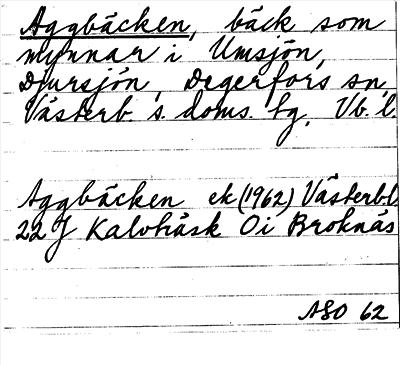 Aggbäcken, bäck som
mynnar i Umsjön,
Djursjön, Degerfors sn,
Västerb. s. doms. tg, Vb. l.
Aggbäcken ek (1962) Västerbl.
22 J Kalvträsk Oi Broknäs
ASO 62